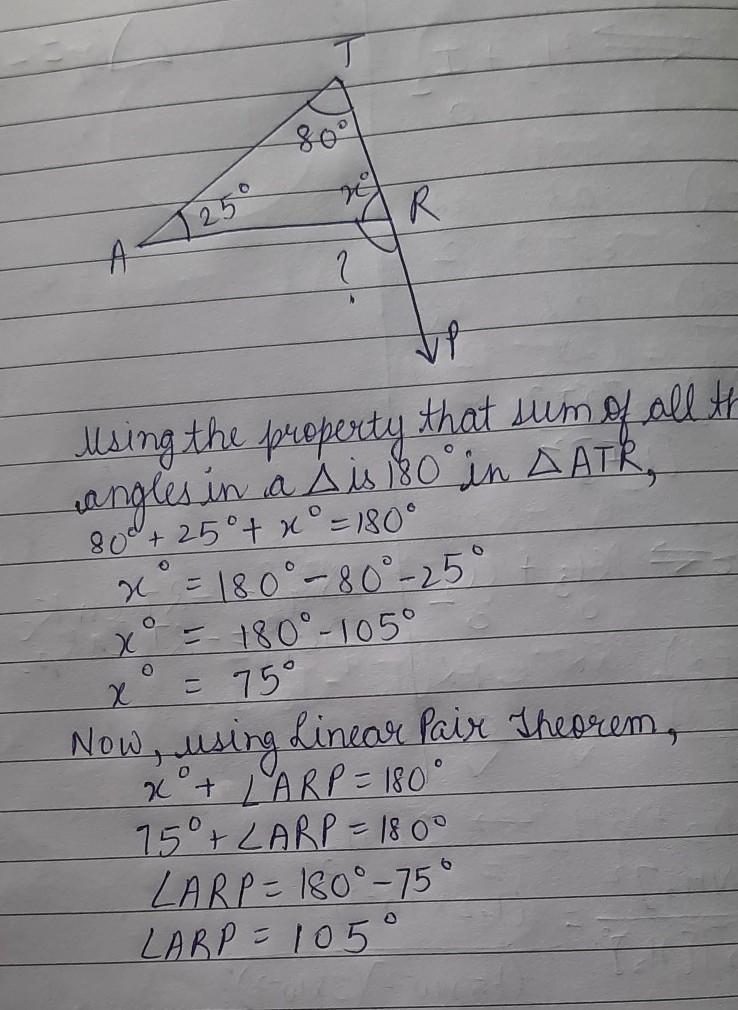 T
80°
x°
25°
R
A
?
P
Using the property that sum of all
angles in a △ is 180° in △ATR,
80° + 25° + x° = 180°
x° = 180° - 80° - 25°
x° = 180° - 105°
x° = 75°
Now, using Linear Pair Theorem,
x° + ∠ARP = 180°
75° + ∠ARP = 180°
∠ARP = 180° - 75°
∠ARP = 105°